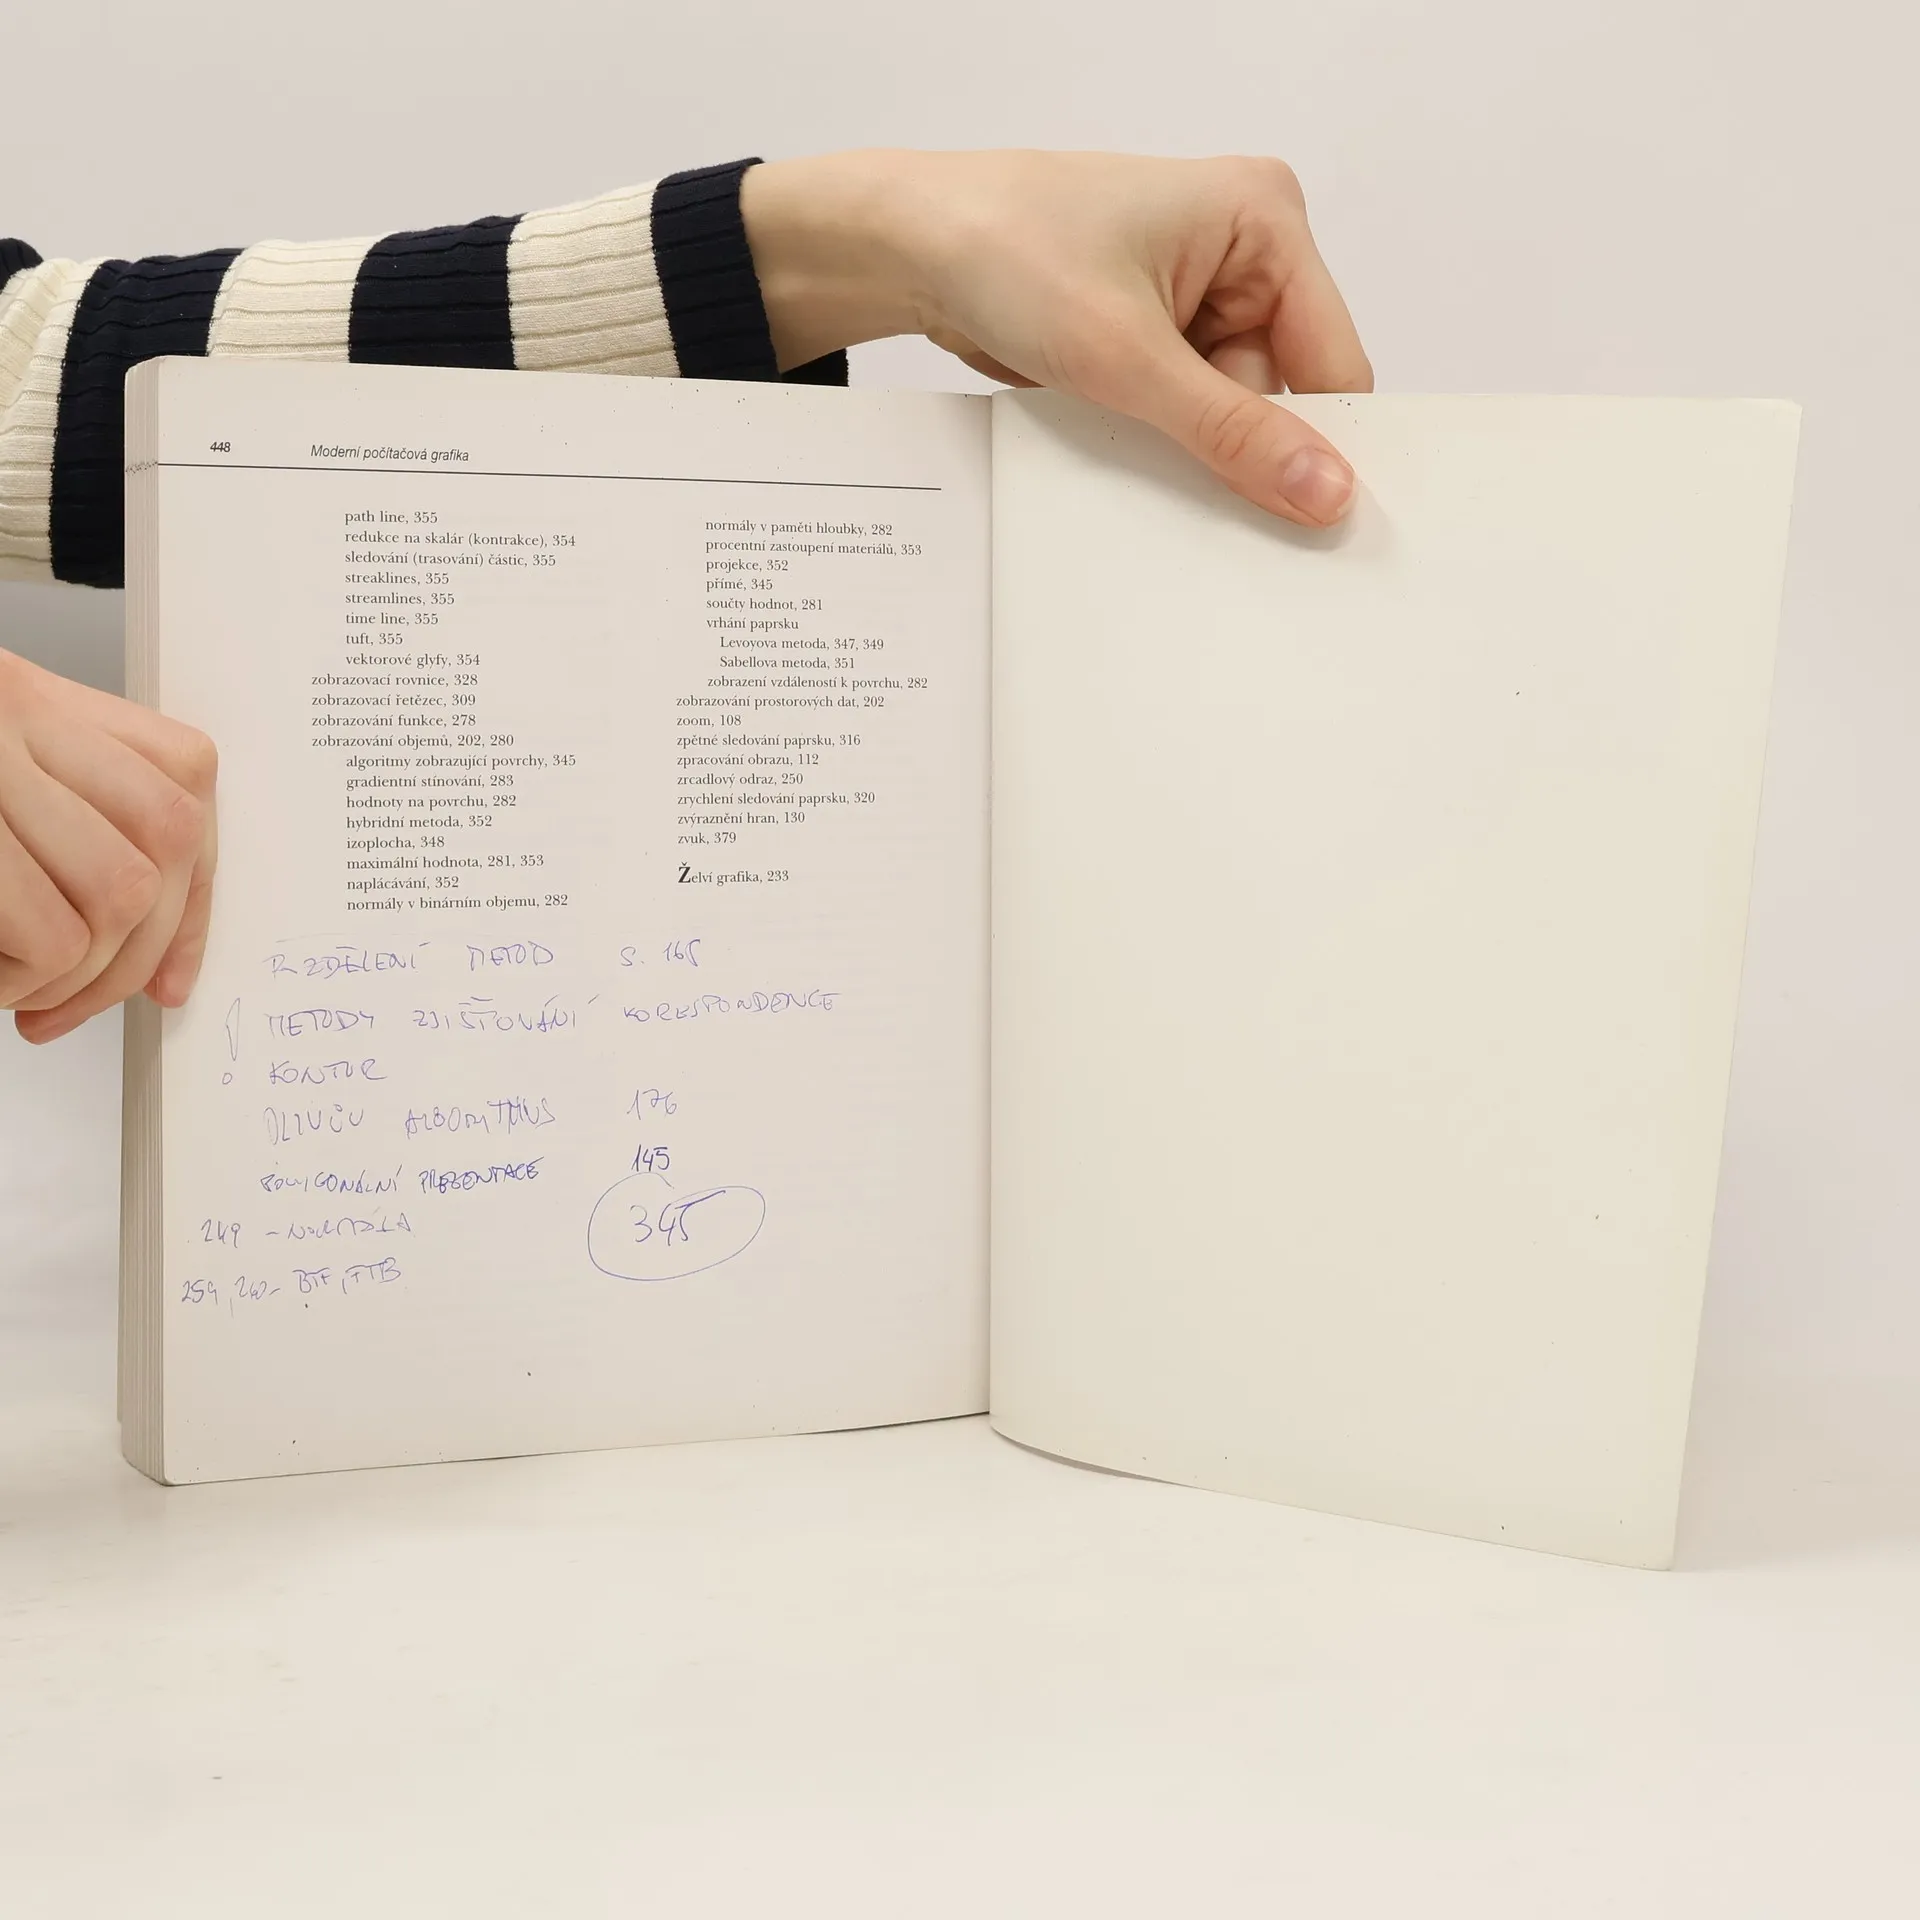 448 Moderní počítačová grafika
path line, 355
redukce na skalár (kontrakce), 354
sledování (trasování) částic, 355
streaklines, 355
streamlines, 355
time line, 355
tuft, 355
vektorové glyfy, 354
zobrazovací rovnice, 328
zobrazovací řetězec, 309
zobrazování funkce, 278
zobrazování objemů, 202, 280
algoritmy zobrazující povrchy, 345
gradientní stínování, 283
hodnoty na povrchu, 282
hybridní metoda, 352
izoplocha, 348
maximální hodnota, 281, 353
naplácávání, 352
normály v binárním objemu, 282
normály v paměti hloubky, 282
procentní zastoupení materiálů, 353
projekce, 352
přímé, 345
součty hodnot, 281
vrhání paprsku
Levoyova metoda, 347, 349
Sabellova metoda, 351
zobrazení vzdáleností k povrchu, 282
zobrazování prostorových dat, 202
zoom, 108
zpětné sledování paprsku, 316
zpracování obrazu, 112
zrcadlový odraz, 250
zrychlení sledování paprsku, 320
zvýraznění hran, 130
zvuk, 379
Želví grafika, 233
METOD S.
! METODY ZJIŠŤOVÁNÍ KORESPONDENCE
KONTUR
ALGORITMUS 176
145
345
249 -
259, 260- BTF, FTB